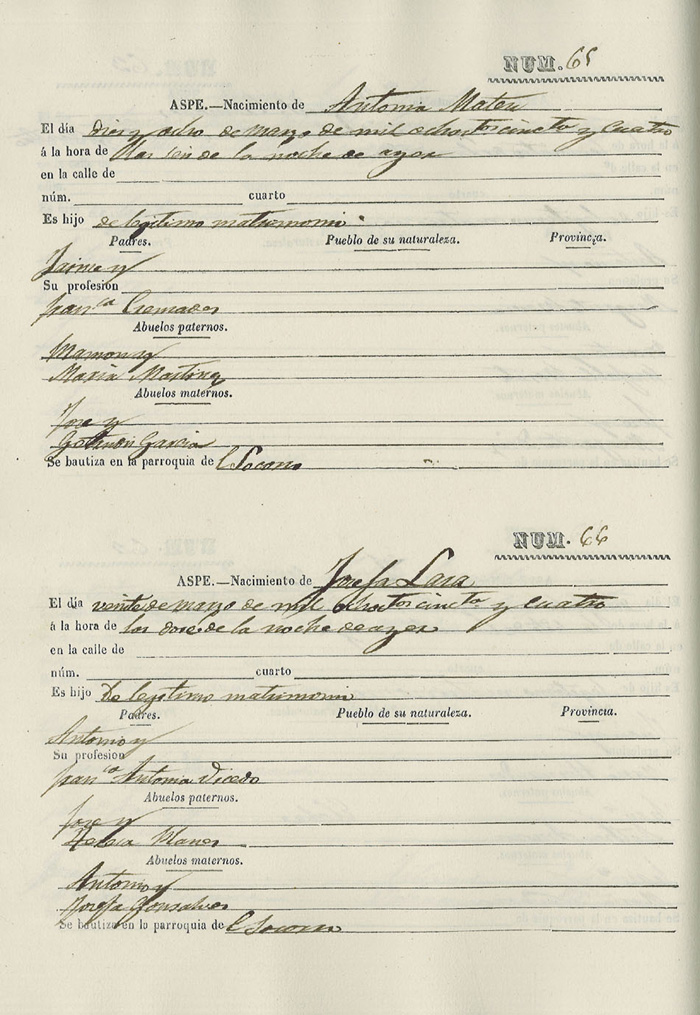 NUM. 65
ASPE.—Nacimiento de Antonia Mateu
El día diez y ocho de marzo de mil ochos.tos cinc.ta y Cuatro
á la hora de las seis de la noche de ayer
en la calle de
núm. cuarto
Es hijo de legitimo matrimonio.
Padres. Pueblo de su naturaleza. Provincia.
Jaime y
Su profesion
Fran.ca Cremades
Abuelos paternos.
Ramon y
Maria Martinez
Abuelos maternos.
Jose y
Garcia
Se bautiza en la parroquia de l Socorro
NUM. 66
ASPE.—Nacimiento de Josefa Lara
El día veinte de marzo de mil ochos.tos cinc.ta y Cuatro
á la hora de las doce de la noche de ayer
en la calle de
núm. cuarto
Es hijo De legitimo matrimonio
Padres. Pueblo de su naturaleza. Provincia.
Antonio y
Su profesion
Fran.ca Antonia Vicedo
Abuelos paternos.
Jose y
Teresa Planes
Abuelos maternos.
Antonio y
Josefa Gonsalves
Se bautiza en la parroquia de l Socorro